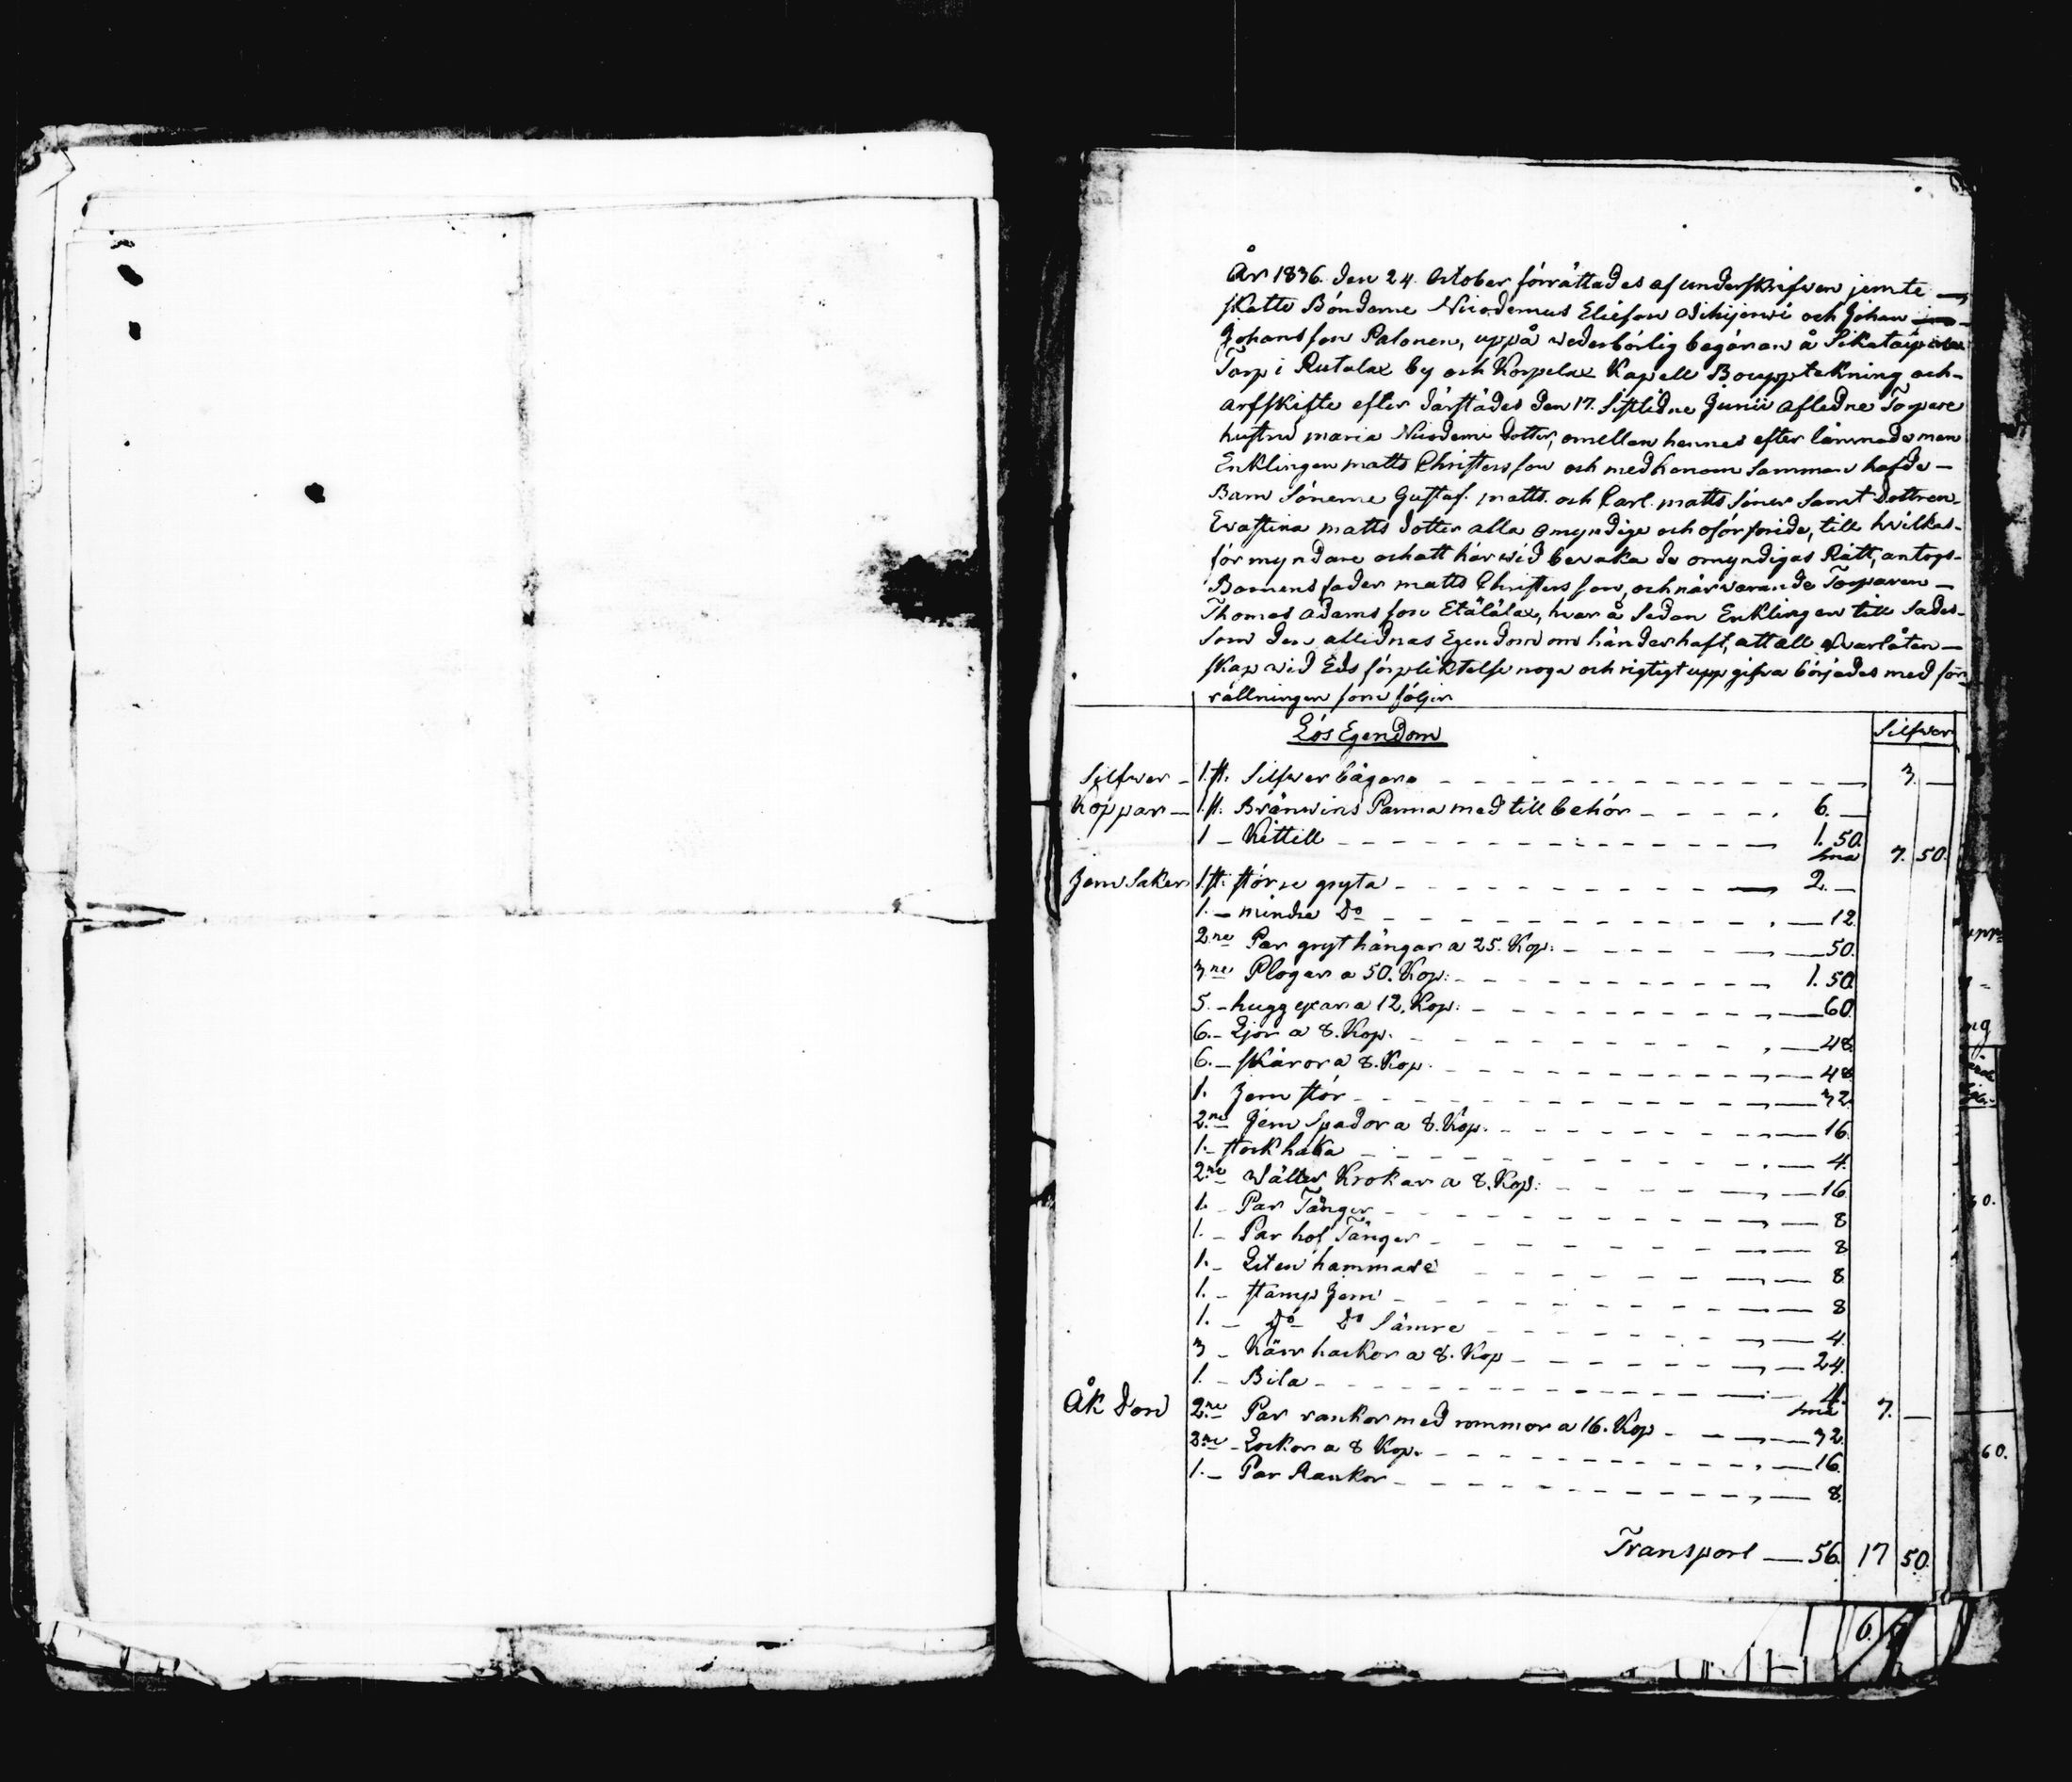 År 1836. den 24. October förrättades af underskrifven jemte
skatte Bönderne Nicodemus Eliesson Sihijerwi och Johan
Johansson Palonen, uppå wederbörlig begäran å
Torp i Rutalax by och Korpelax Kapell Bouppteckning och
arfskifte efter därstädes den 17. Sistledne Junii afledne Torpare
hustru maria Nicodemi dotter, emellan hennes efter lämnade man
Enklingen matts Christersson och med honom Samman hafde
Barn Sönerne Gustaf. matts. och Carl. matts Söner Samt dottren
Evastina matts dotter alla omyndige och oförsörjde, till hvilkas
förmyndare och att härwid bevaka de omyndigas Rätt, antogs
Barnens fader matts Christersson, och närwarande Torparen
Thomas Adamsson Etälälax, hvar å Sedan Enklingen till Sades
Som den aflednas Egendom om händerhaft, att all qvarlåten
skap wid Eds förpliktelse noga och rigtigt uppgifva börjades med för
rättningen som följer
Lös Egendom
Silfwer
Silfwer 1. st. Silfwer bägare 3.
Koppar 1. st. Bränwins Panna med till behör 6.
1 Kittill 1. 50. 7. 50.
Jern Saker 1. st. större gryta 2.
1. mindre do 12
2ne Par grythängar a 25. Kop: 50.
3ne Plogar a 50. Kop: 1. 50
5. hugg yxar a 12. Kop: 60
6. Ljor a 8. Kop. 48
6. skäror a 8. Kop. 48
1. Jern stör 32
2ne Jern Spador a 8. Kop. 16
1. stock haka 4
2ne wälter Krokar a 8. Kop: 16
1. Par Tänger 8
1. Par hof Tänger 8
1. Liten hammare 8
1. stamp Jern 8
1. do do Sämre 4
3 Kärr hackor a 8. Kop 24
1. Bila 4 7.
Åk don 2ne Par rankor med rommor a 16. Kop 32
2ne Lockor a 8 Kop. 16
1. Par Rankor 8.
Transport 56. 17 50.
60.